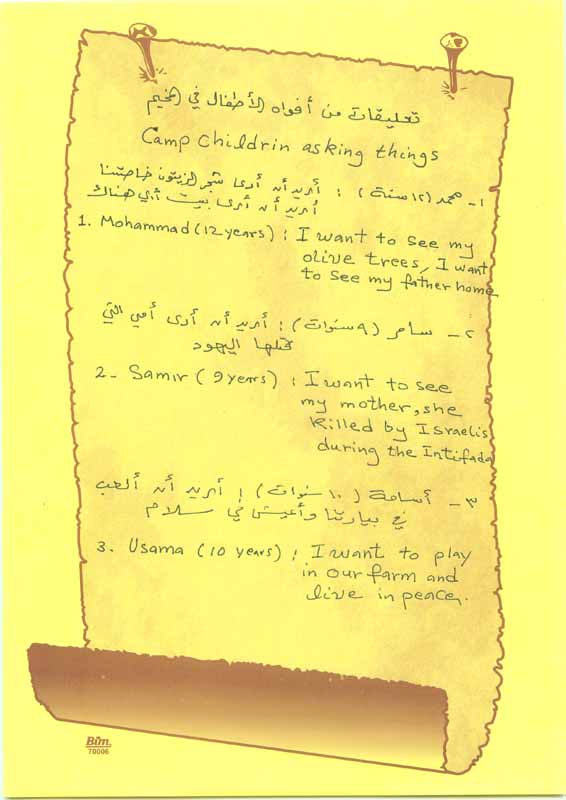 تعليقات من أفواه الأطفال في المخيم
Camp Childrin asking things
١ـ محمد (١٢ سنة) : أريد أن أرى شجر الزيتون خاصتنا
أريد أن أرى بيت أبي هناك
1. Mohammad (12 years) : I want to see my
olive trees, I want
to see my father home
٢ـ سامر (٩ سنوات) : أريد أن أرى أمي التي
قتلها اليهود
2- Samir (9 years) : I want to see
my mother, she
Killed by Israelis
during the Intifada
٣ـ أسامة (١٠ سنوات) : أريد أن ألعب
في بيارتنا وأعيش في سلام
3. Usama (10 years) : I want to play
in our farm and
live in peace.
Bim
70006